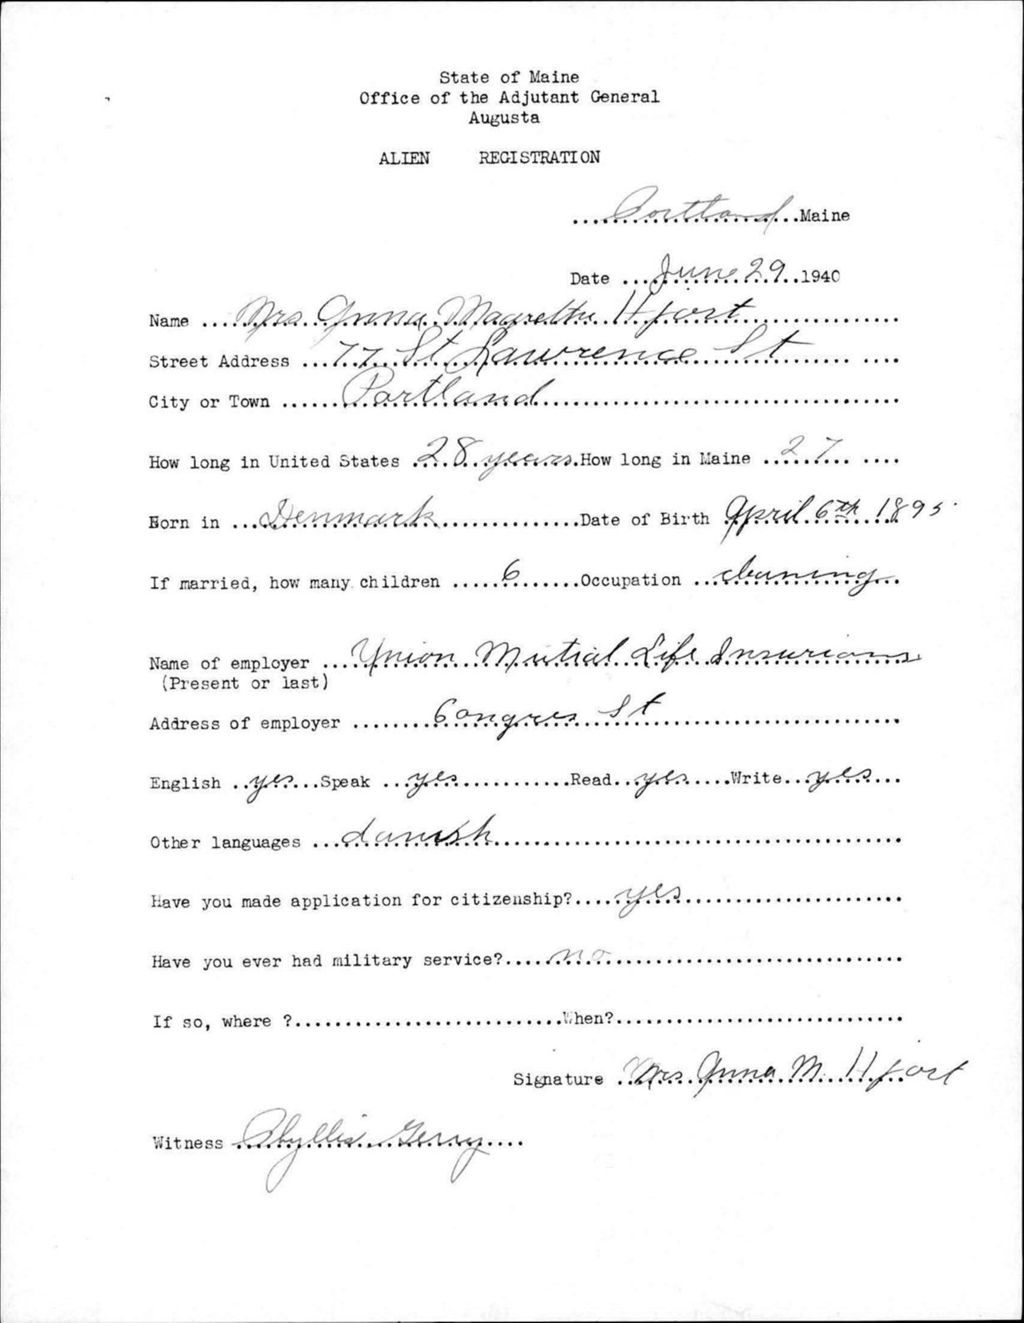 State of Maine
Office of the Adjutant General
Augusta
ALIEN REGISTRATION
Portland Maine
Date June 29 1940
Name Mrs Anna Magrethe Hjort
Street Address 77 St Lawrence St
City or Town Portland
How long in United States 28 years How long in Maine 27
Born in Denmark Date of Birth April 6th 1895
If married, how many children 6 Occupation cleaning
Name of employer Union Mutial Life
(Present or last)
Address of employer Congres St
English yes Speak yes Read yes Write yes
Other languages danish
Have you made application for citizenship? yes
Have you ever had military service? no
If so, where ? When?
Signature Mrs Anna M. Hjort
Witness Phyllis Gerry